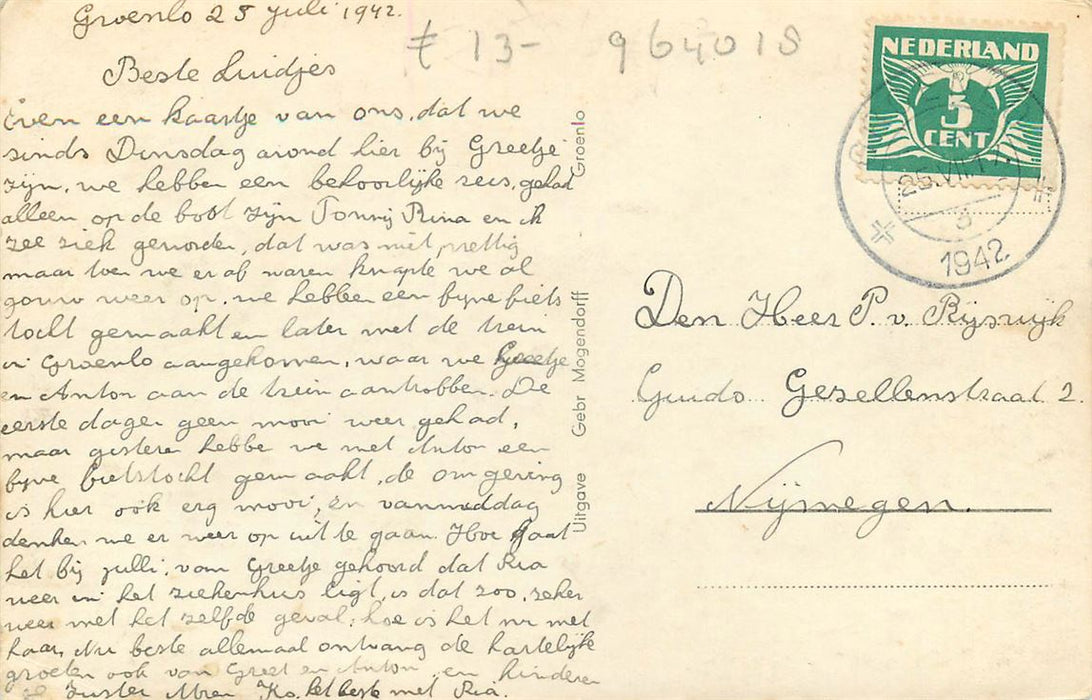 Groenlo 25 Juli 1942.
€ 13- 964018
Beste Luidjes
Even een kaartje van ons, dat we
sinds Dinsdag avond hier bij Greetje
zijn, we hebben een behoorlijke reis, gehad
alleen op de boot zijn Tonnij Rina en ik
zee ziek geworden, dat was niet prettig
maar toen we er af waren knapte we al
gouw weer op, we hebben een fijne fiets
tocht gemaakt en later met de trein
in Groenlo aangekomen, waar we Greetje
en Anton aan de trein aantroffen. De
eerste dagen geen mooi weer gehad,
maar gisteren hebbe we met Anton een
fijne fietstocht gemaakt, de omgeving
is hier ook erg mooi, en vanmiddag
denken we er weer op uit te gaan. Hoe gaat
het bij jullie, van Greetje gehoord dat Ria
weer in het ziekenhuis ligt, is dat zoo, zeker
weer met het zelfde geval, hoe is het nu met
haar, Nu beste allemaal ontvang de hartelijke
groeten ook van Greet en Anton, en kinderen
Zuster Ko, het beste met Ria.
Uitgave Gebr Mogendorff Groenlo
NEDERLAND
5
CENT
25.VII.17
3
1942
Den Heer P. v. Rijswijk
Guido Gezellenstraat 2.
Nijmegen.